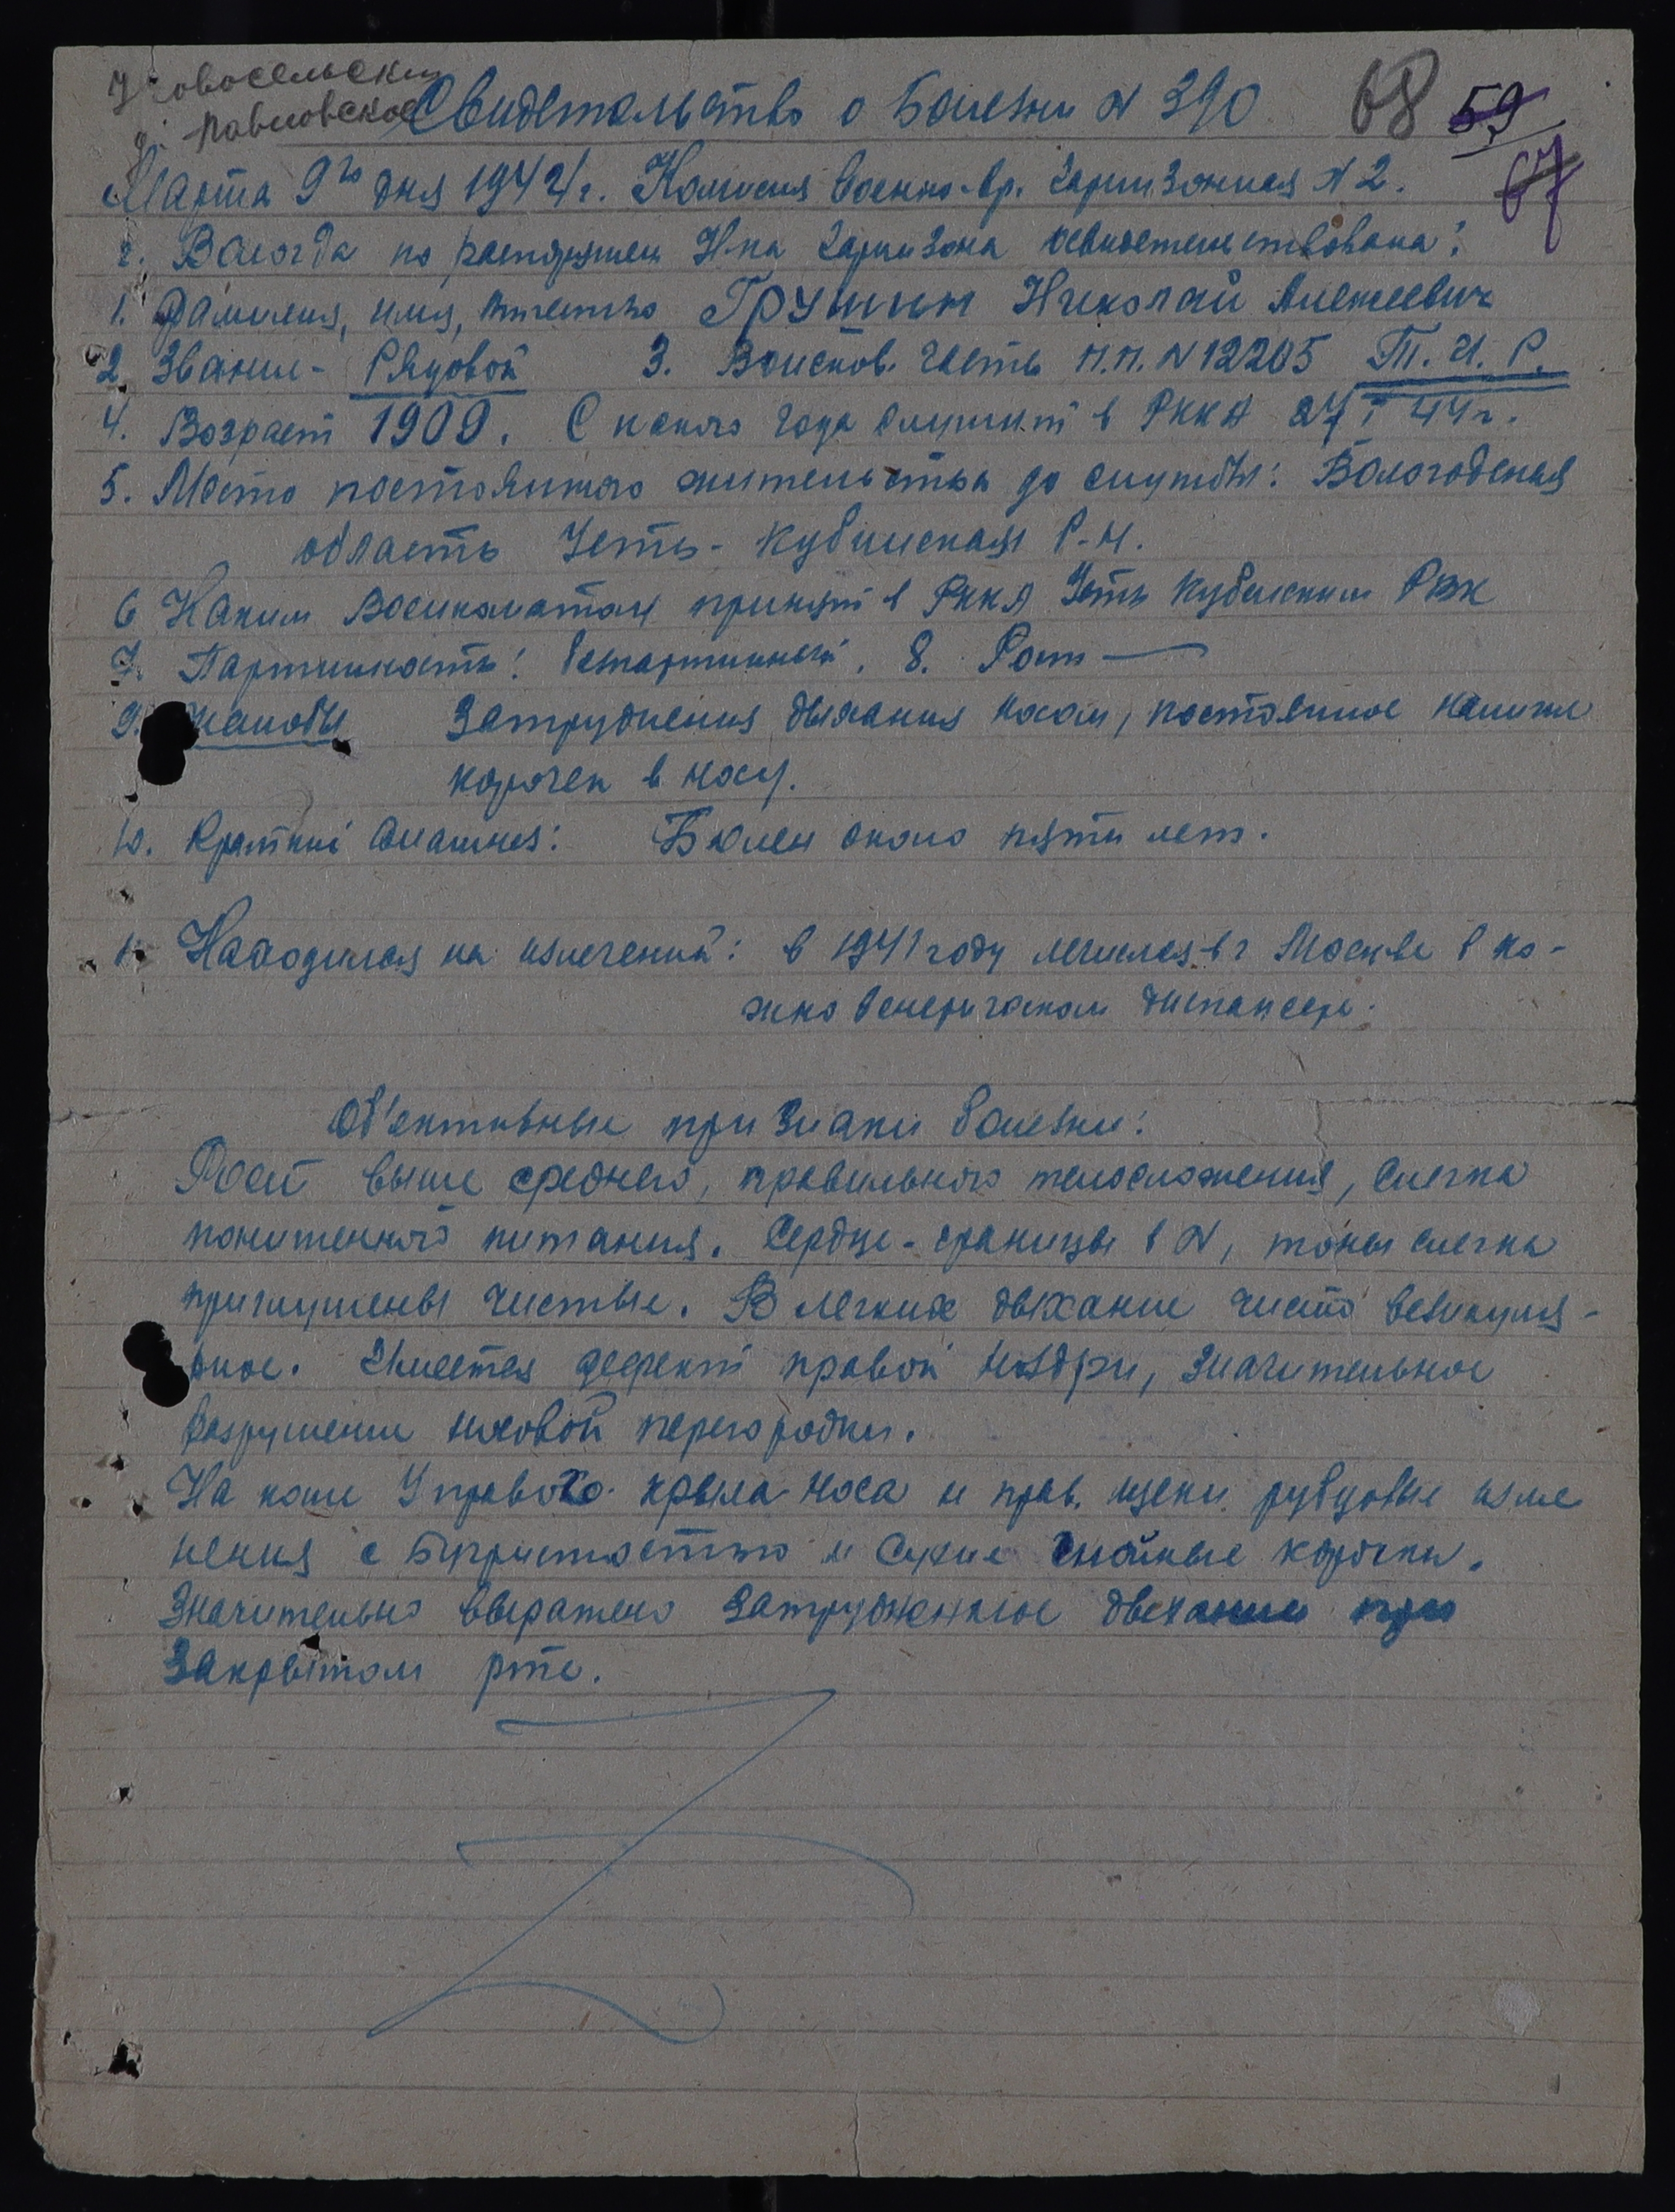 Новосельский
д. Павловское
Свидетельство о болезни N 390
68 59
67
Марта 9го дня 1944 г. Комисия военно-вр. гарнизонная N 2.
г. Вологда по распоряжен Н-ка гарнизона освидетельствована:
1. Фамилия, имя, отчество Грушин Николай Алексеевич
2 Звание - Рядовой 3. Воинсков. часть П.П. N 12205 Т. И. Р.
4. Возраст 1909. С какого года служит в РККА 27 I 44 г.
5. Место постоянного жительства до службы: Вологодская
область Усть-Кубинская Р-н.
6 Каким Военкоматом принят в РККА Усть Кубинским РВК
7. Партийность: беспартийный. 8. Рост —
9. Жалобы Затруднения дыхания носом, постоянное наличие
корочек в носу.
10. Краткий анамнез: Болен около пяти лет.
11. Находился на излечении: в 1941 году лечился в г Москве в ко-
жно венерическом диспансере.
Об'ективные признаки болезни:
Рост выше среднего, правильного телосложения, слегка
пониженного питания. Сердце - границы в N, тоны слегка
приглушены чистые. В легких дыхание чисто везикуля-
рное. Имеется дефект правой ноздри, значительное
разрушение носовой перегородки.
На коже у правого крыла носа и прав. щеки рубцовые изме
нения с бугристостью и сухие гнойные корочки.
Значительно выражено затрудненное дыхание при
закрытом рте.